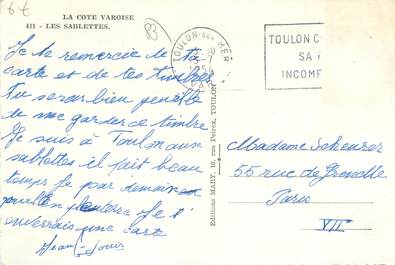 6€
LA COTE VAROISE
411 - LES SABLETTES.
83
Je te remercie de ta
carte et de tes timbres
Tu serais bien gentille
de me garder ce timbre
Je suis à Toulon aux
sablettes il fait beau
temps Je par demain
Je t'
enverrais une carte
Jean
Editions MARY, 16, rue Peiresc, TOULON
TOULON-sur-MER
TOULON C
SA
INCOMP
Madame Scheurer
55 rue de Grenelle
Paris
VIIe